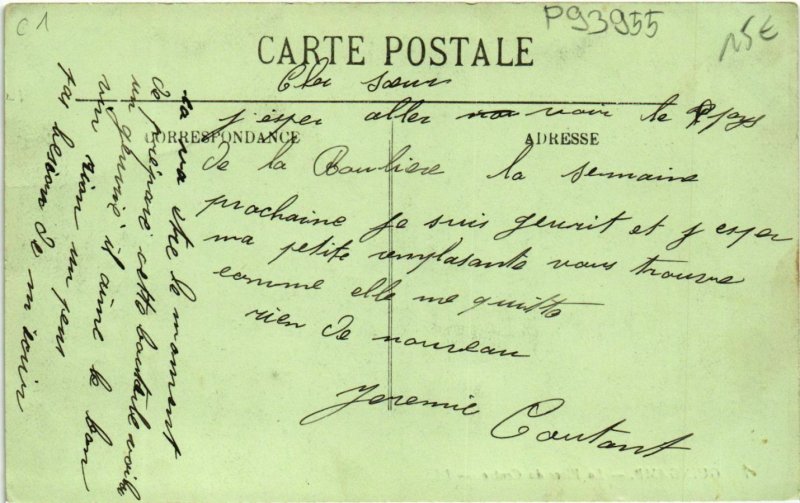 C1
P93955
15€
CARTE POSTALE
Cher soeur
CORRESPONDANCE
ADRESSE
j'esper aller voir le pays
de la Bouliere la semaine
prochaine je suis geurit et j'esper
ma petite remplasante vous trouve
comme elle me quitte
rien de nouveau
Jeremie Coutant
sa va etre le moment
de préparé cette bouteille voila
un gourmé il aime le bon
vin rian un peu
pas besoin de